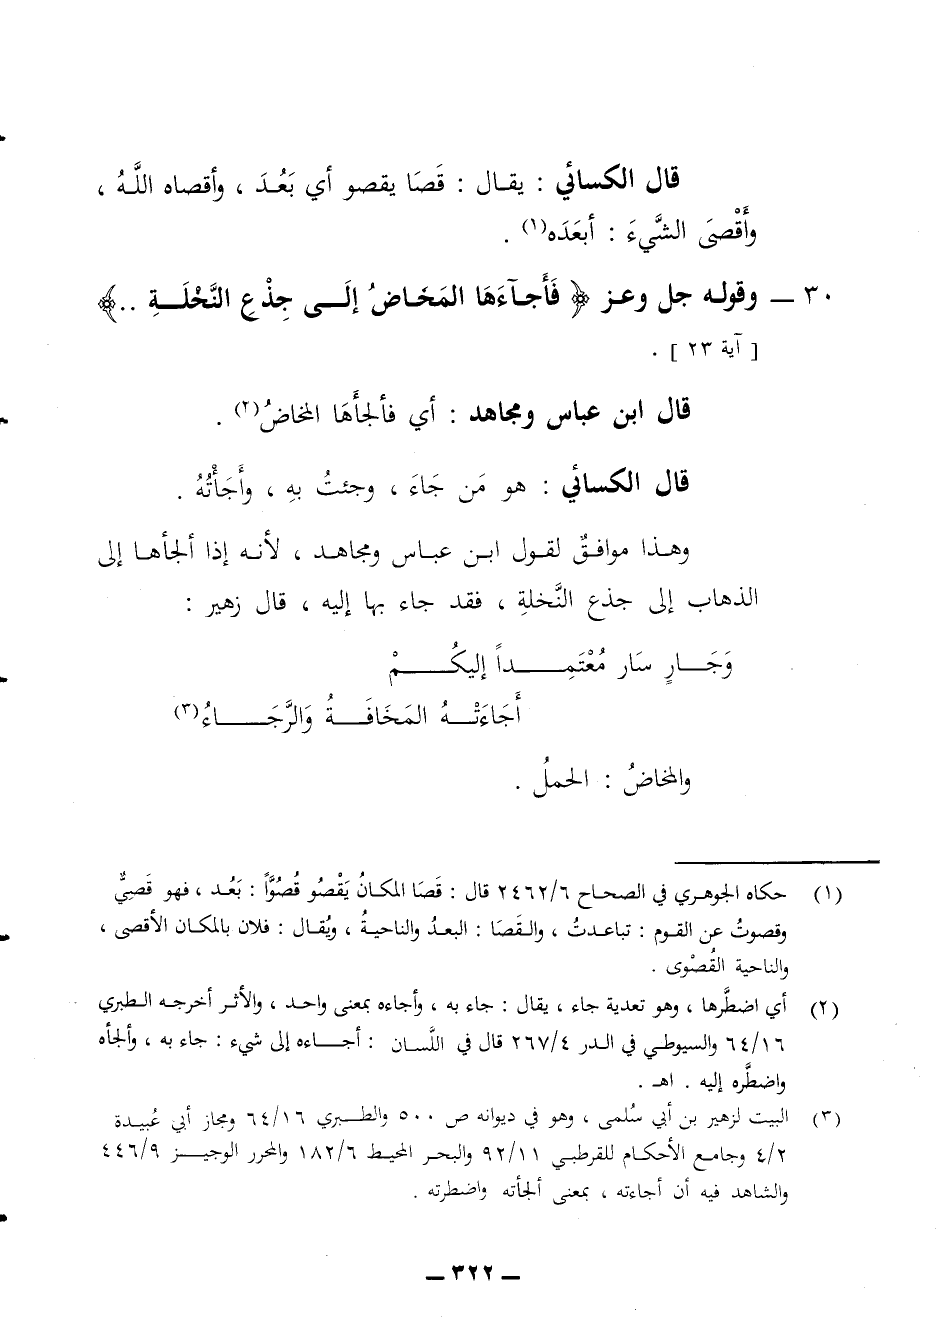 قال الكسائي : يقـال : قَصَا يقصو أي بَعُـدَ ، وأقصاه اللَّهُ ،
وأَقْصَى الشَّيءَ : أبعَدَه(١) .
٣٠ ــ وقوله جل وعـز ﴿ فَأَجآءَهَا المَخَاضُ إلَــى جِذْعِ النَّخْلَــةِ ..﴾
[ آية ٢٣ ] .
قال ابن عباس ومجاهد : أي فألجأَهَا المخاضُ(٢) .
قال الكسائي : هو مَن جَاءَ ، وجئتُ بهِ ، وأَجَأْتُهُ .
وهـذا موافـقٌ لقول ابـن عبـاس ومجاهـد ، لأنـه إذا ألجأهـا إلى
الذهاب إلى جذع النَّخلةِ ، فقد جاء بها إليه ، قال زهير :
وَجَـــارٍ سَار مُعْتَمِـــــداً إليكُــــمْ
أَجَاءَتْـــهُ المَخَافَــةُ وَالرَّجَـــــاءُ(٣)
والمخاضُ : الحملُ .
(١) حكاه الجوهـري في الصحاح ٢٤٦٢/٦ قال : قَصَا المكانُ يَقْصُو قُصُوَّاً : بَعُـد ، فهو قَصِيٌّ
وقصوتُ عن القوم : تباعدتُ ، والـقَصَا : البعدُ والناحيةُ ، ويُقال : فلان بالمكان الأقصى ،
والناحية القُصْوى .
(٢) أي اضطَّرها ، وهو تعدية جاء ، يقال : جاء به ، وأجاءه بمعنى واحد ، والأثر أخرجه الـطبري
٦٤/١٦ والسيوطي في الـدر ٢٦٧/٤ قال في اللَّسان : أجـــاءه إلى شيء : جاء به ، وألجأه
واضطَّره إليه . اهـ .
(٣) البيت لزهير بن أبي سُلمى ، وهو في ديوانه ص ٥٠٠ والطـــبري ٦٤/١٦ ومجاز أبي عُبيـدة
٤/٢ وجامع الأحكـام للقرطبـي ٩٢/١١ والبحـر المحيـط ١٨٢/٦ والمحرر الوجيـــز ٤٤٦/٩
والشاهد فيه أن أجاءته ، بمعنى ألجأته واضطرته .
ــ ٣٢٢ ــ